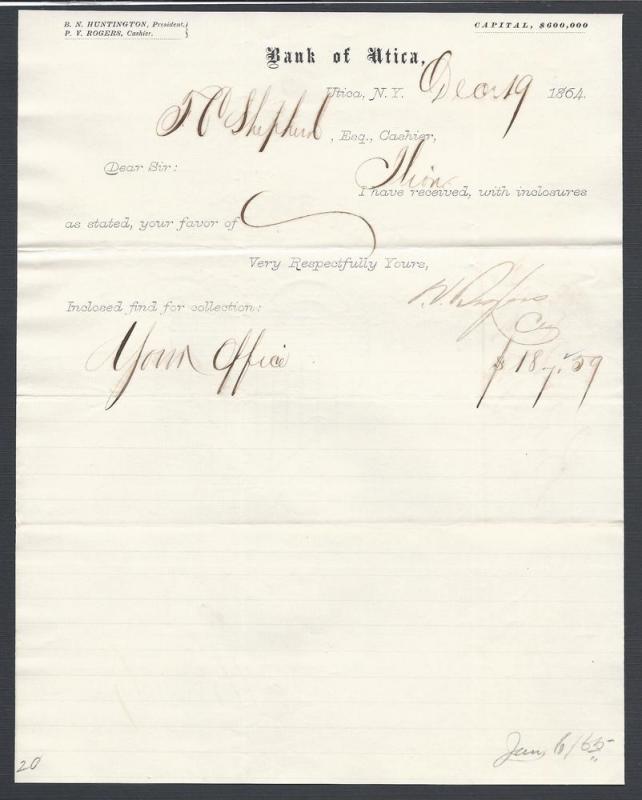 B. N. HUNTINGTON, President.
P. V. ROGERS, Cashier.
CAPITAL, $600,000
Bank of Utica,
Utica, N.Y. Dec 19 1864.
T C Shepherd, Esq., Cashier,
Ilion
Dear Sir:
I have received, with inclosures
as stated, your favor of
Very Respectfully Yours,
P.V. Rogers
Cr
Inclosed find for collection:
Your Office $ 187.59
20
Jan, 6/65